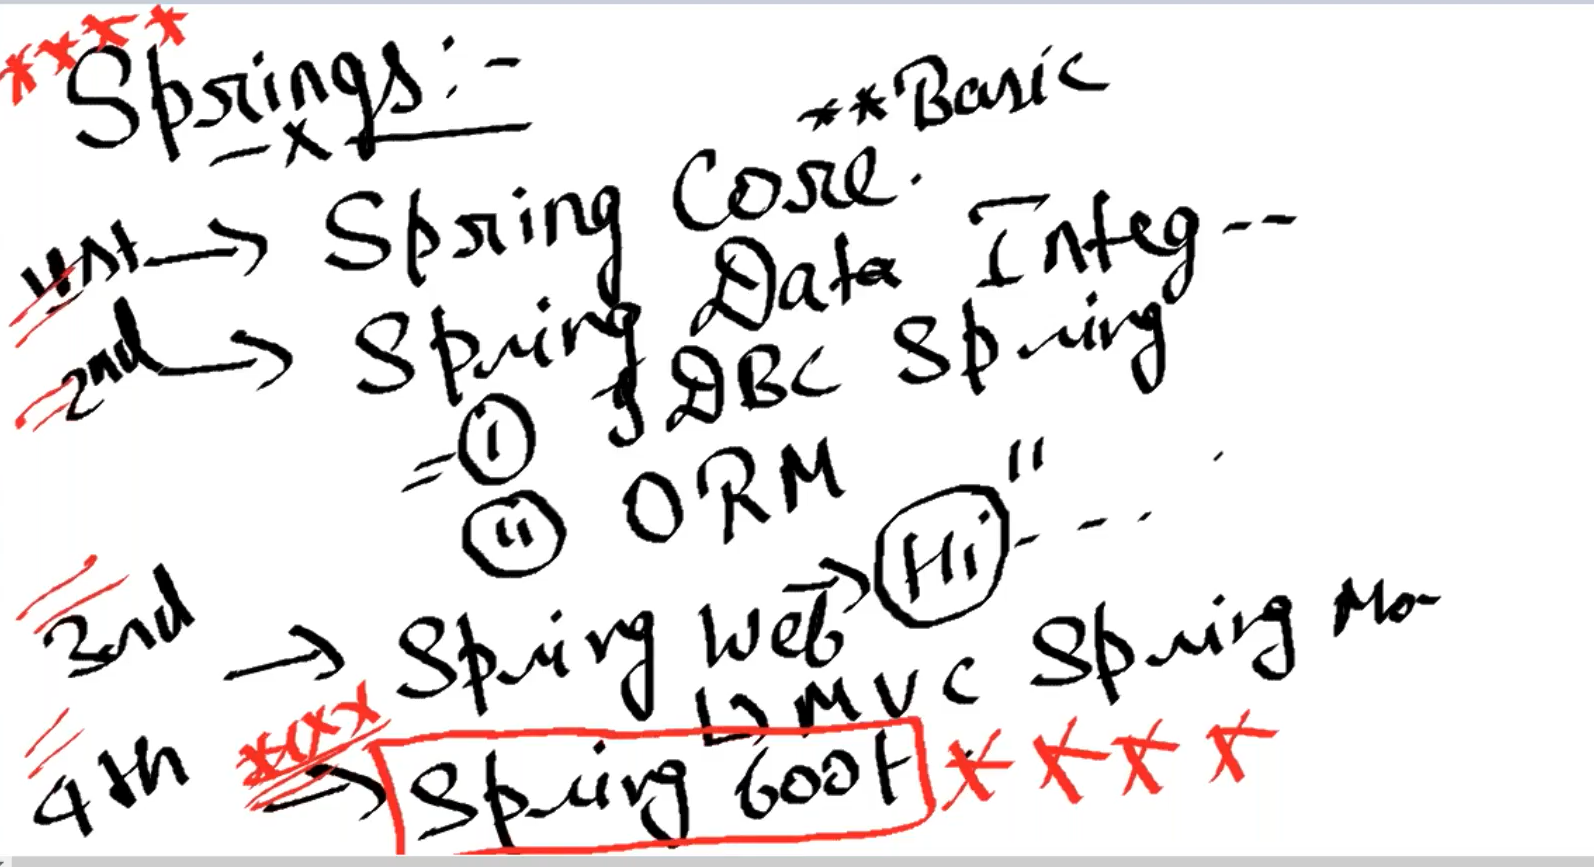 **** Springs :-
** Basic
1st → Spring Core.
2nd → Spring Data Integ --
= i JDBC Spring
ii ORM "
3rd → Spring Web → Hi - - -
↳ MVC Spring Mo-
4th → Spring boot ****